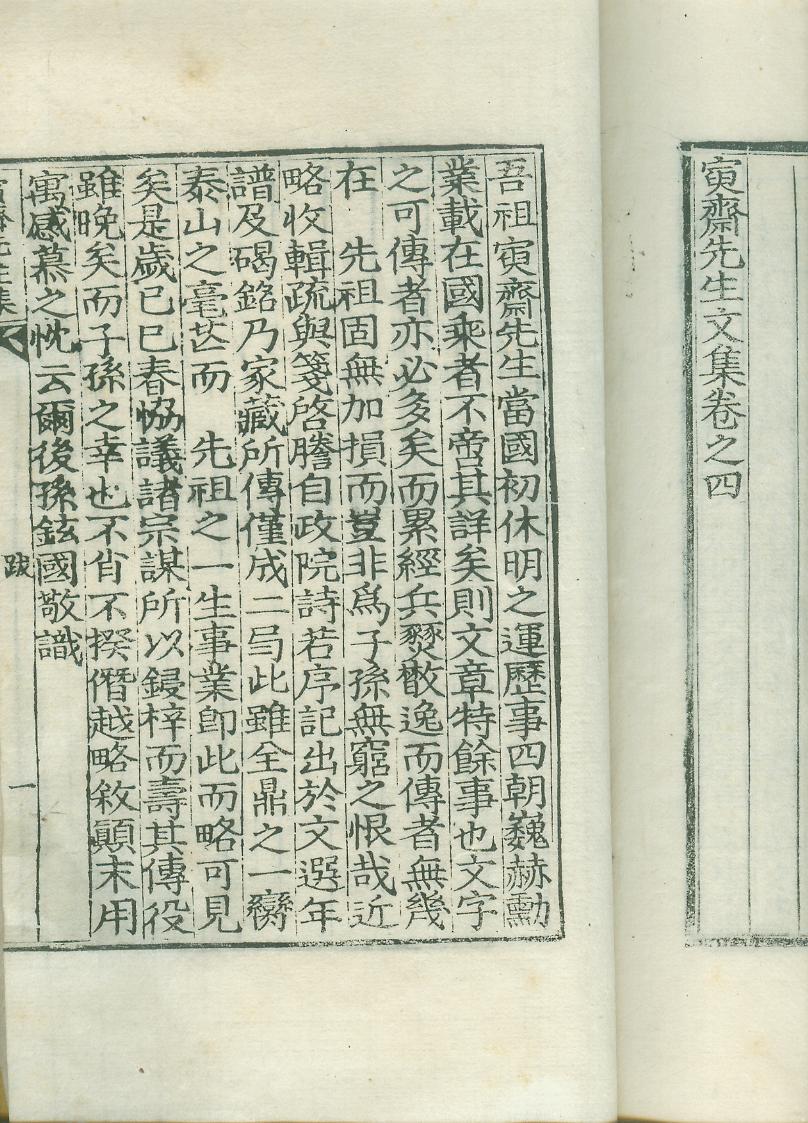 寅齋先生文集卷之四
吾祖寅齋先生當國初休明之運歷事四朝巍赫勳
業載在國乘者不啻其詳矣則文章特餘事也文字
之可傳者亦必多矣而累經兵燹散逸而傳者無幾
在 先祖固無加損而豈非爲子孫無窮之恨哉近
略收輯疏與箋啓謄自政院詩若序記出於文選年
譜及碣銘乃家藏所傳僅成二弓此雖全鼎之一臠
泰山之毫芒而 先祖之一生事業卽此而略可見
矣是歲己巳春恊議諸宗謀所以鋟梓而壽其傳役
雖晩矣而子孫之幸也不肖不揆僭越略敘顚末用
寓感慕之忱云爾後孫鉉國敬識
寅齋先生集
跋
一